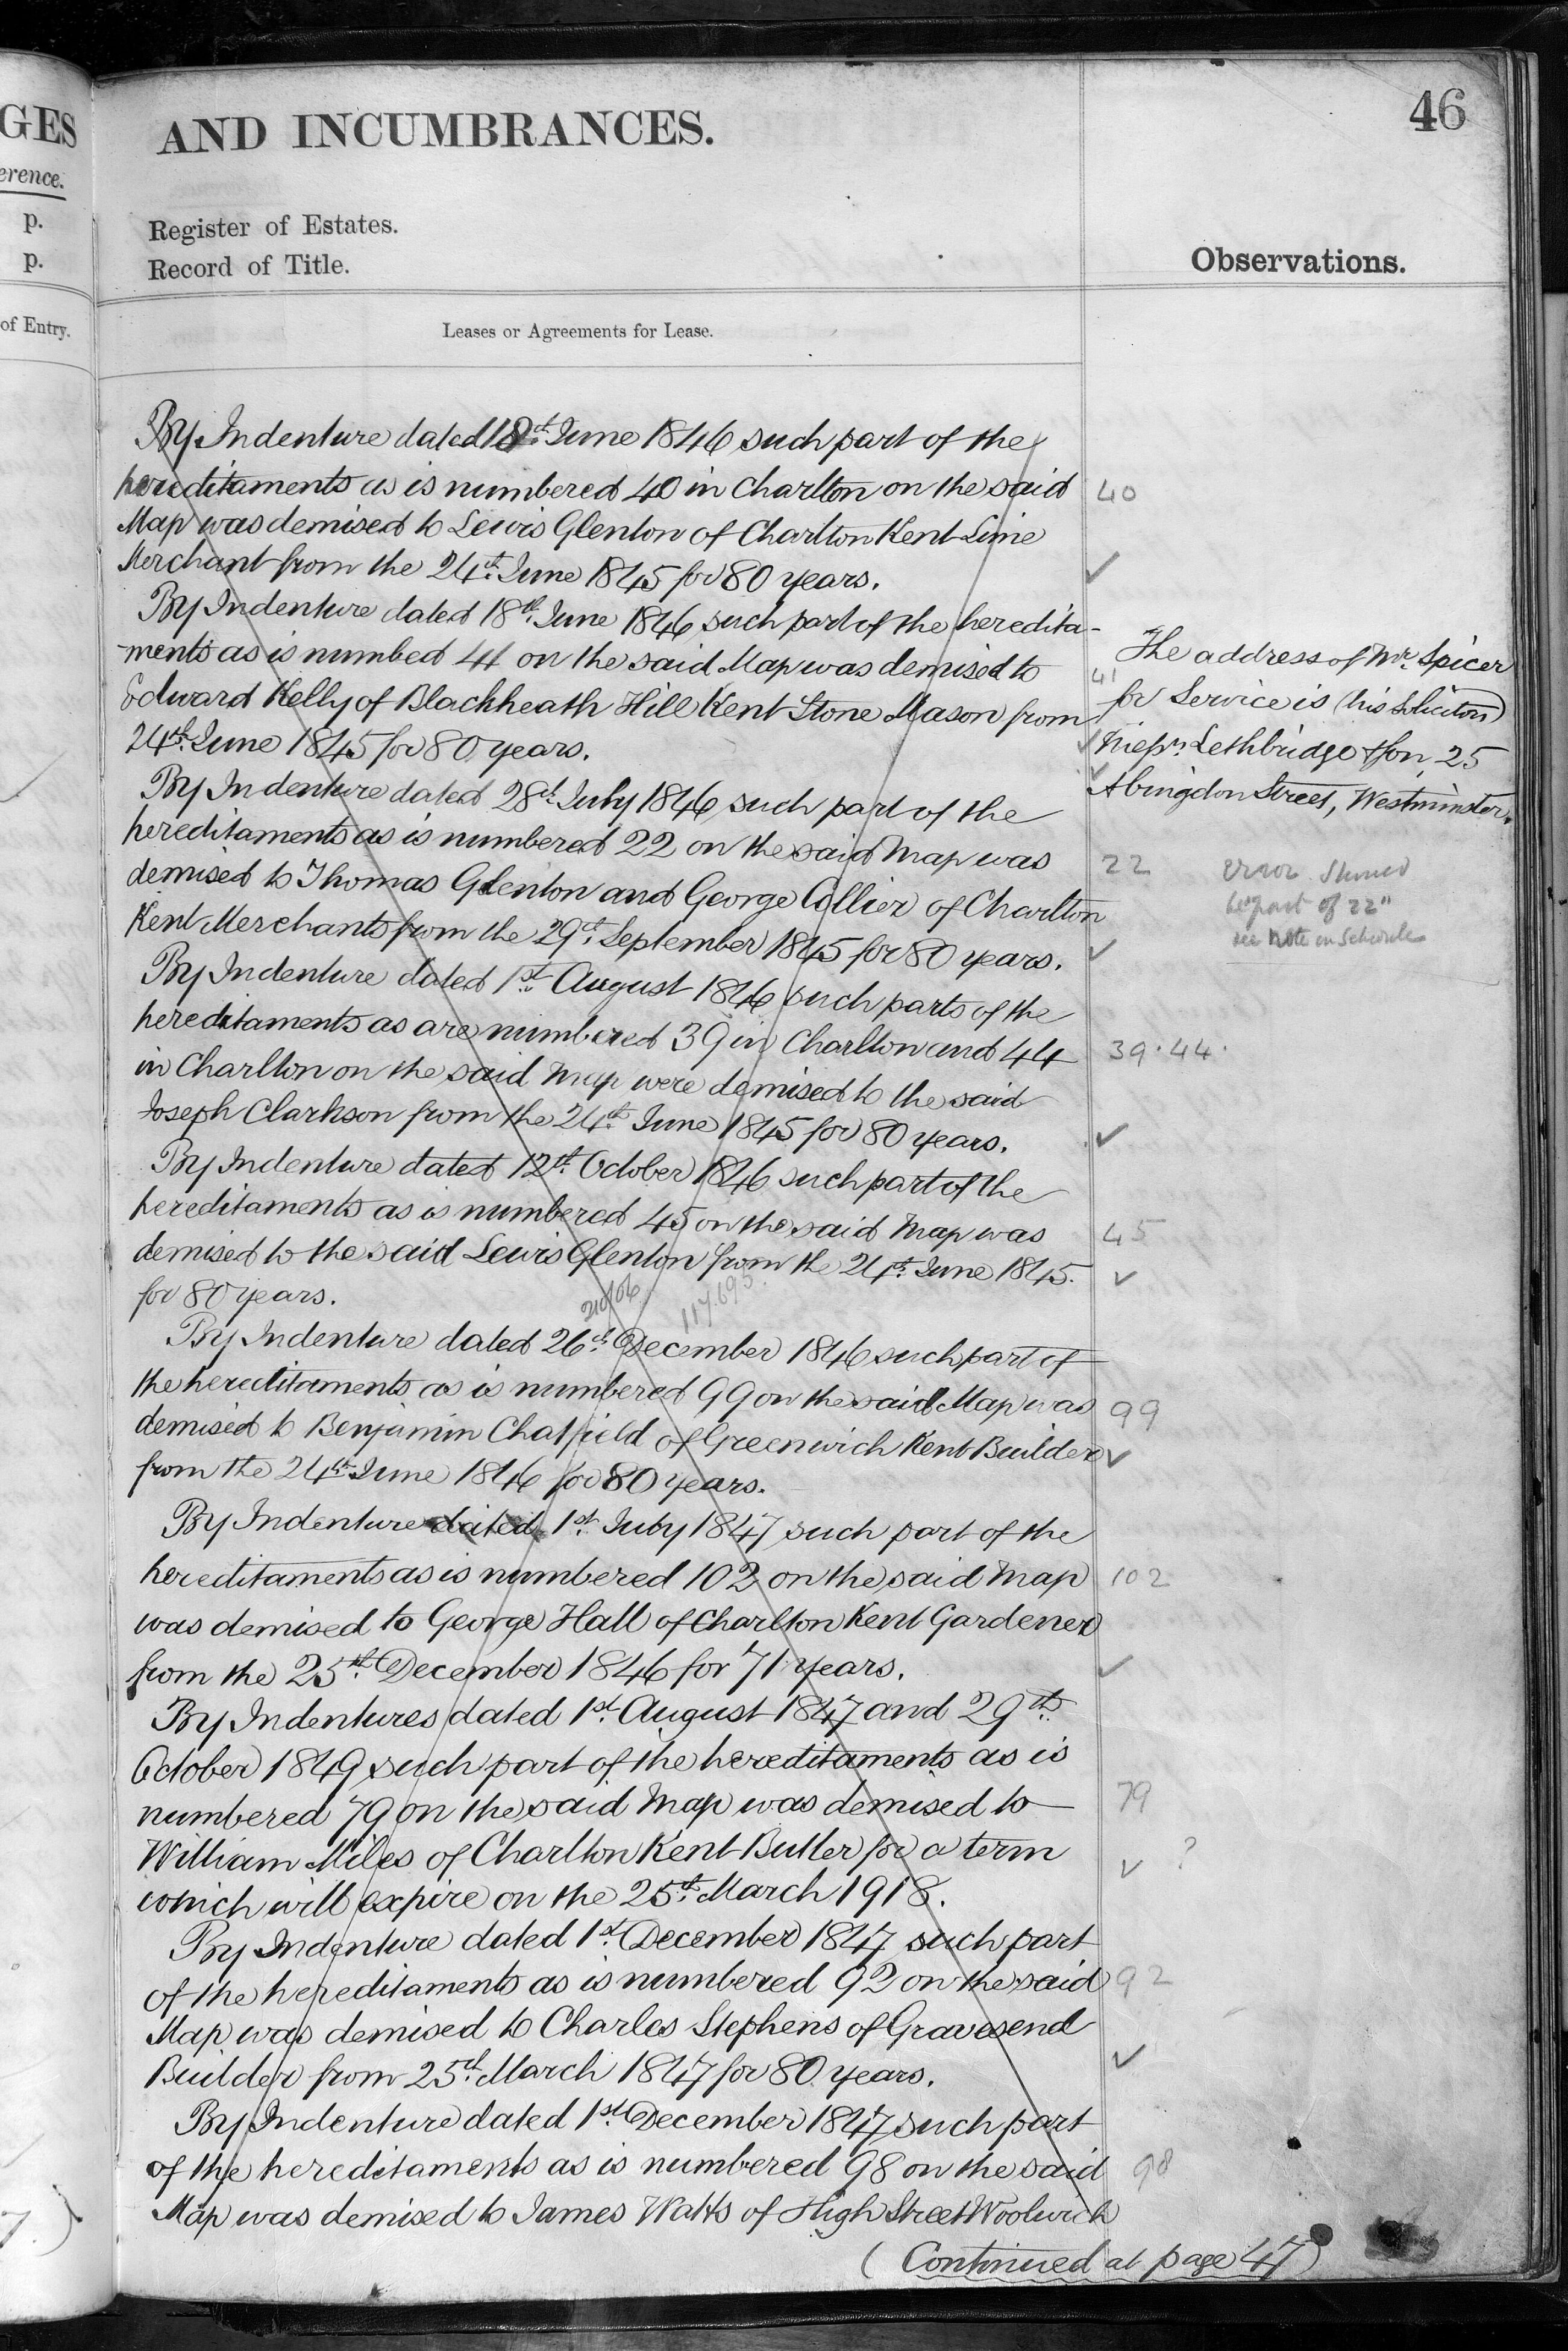 GES
erence.
p.
p.
of Entry.
46
AND INCUMBRANCES.
Register of Estates.
Record of Title.
Observations.
Leases or Agreements for Lease.
By Indenture dated 18th. June 1846 such part of the
hereditaments as is numbered 40 in Charlton on the said
Map was demised to Lewis Glenton of Charlton Kent Lime
Merchant from the 24th. June 1845 for 80 years.
By Indenture dated 18th. June 1846 such part of the heredita-
ments as is numbed 41 on the said Map was demised to
Edward Kelly of Blackheath Hill Kent Stone Mason from
24th. June 1845 for 80 years.
By Indenture dated 28th. July 1846 such part of the
hereditaments as is numbered 22 on the said Map was
demised to Thomas Glenton and George Collier of Charlton
Kent Merchants from the 29th. September 1845 for 80 years.
By Indenture dated 1st. August 1846 such parts of the
hereditaments as are numbered 39 in Charlton and 44
in Charlton on the said Map were demised to the said
Joseph Clarkson from the 24th. June 1845 for 80 years.
By Indenture dated 12th. October 1846 such part of the
hereditaments as is numbered 45 on the said Map was
demised to the said Lewis Glenton from the 24th. June 1845.
for 80 years.
117.695.
By Indenture dated 26th. December 1846 such part of
the hereditaments as is numbered 99 on the said Map was
demised to Benjamin Chatfield of Greenwich Kent Builder
from the 24th. June 1846 for 80 years.
By Indenture dated 1st. July 1847 such part of the
hereditaments as is numbered 102 on the said Map
was demised to George Hall of Charlton Kent Gardener
from the 25th. December 1846 for 71 years.
By Indentures dated 1st. August 1847 and 29th.
October 1849 such part of the hereditaments as is
numbered 79 on the said Map was demised to
William Miles of Charlton Kent Butler for a term
which will expire on the 25th. March 1918.
By Indenture dated 1st. December 1847 such part
of the hereditaments as is numbered 92 on the said
Map was demised to Charles Stephens of Gravesend
Builder from 25th. March 1847 for 80 years.
By Indenture dated 1st. December 1847 such part
of the hereditaments as is numbered 98 on the said
Map was demised to James Watts of High Street Woolwich
(Continued at page 47)
40
The address of Mr. Spicer
41
for Service is (his Solicitors)
Messrs. Lethbridge & Son, 25
Abingdon Street, Westminster.
22
error should
be "part of 22"
see Note in Schedule
39.44.
45
99
102
79
?
92
98
7.)